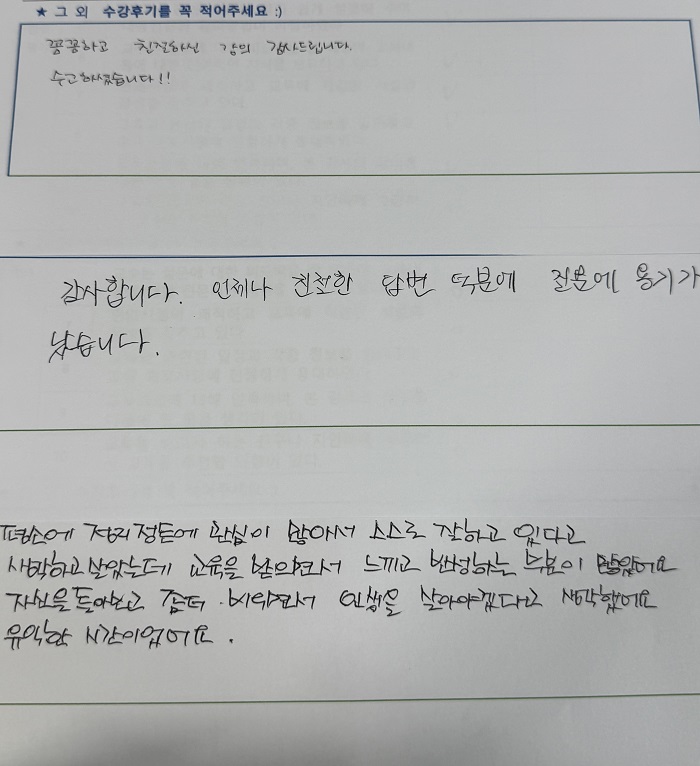 ★ 그 외 수강후기를 꼭 적어주세요 :)
꼼꼼하고 친절하신 강의 감사드립니다.
수고하셨습니다!!
감사합니다. 언제나 친절한 답변 덕분에 질문에 용기가
났습니다.
평소에 정리정돈에 관심이 많아서 스스로 잘하고 있다고
생각하고 살았는데 교육을 받으면서 느끼고 반성하는 부분이 많았어요
자신을 돌아보고 좀더 비우면서 인생을 살아야겠다고 생각했어요
유익한 시간이었어요.